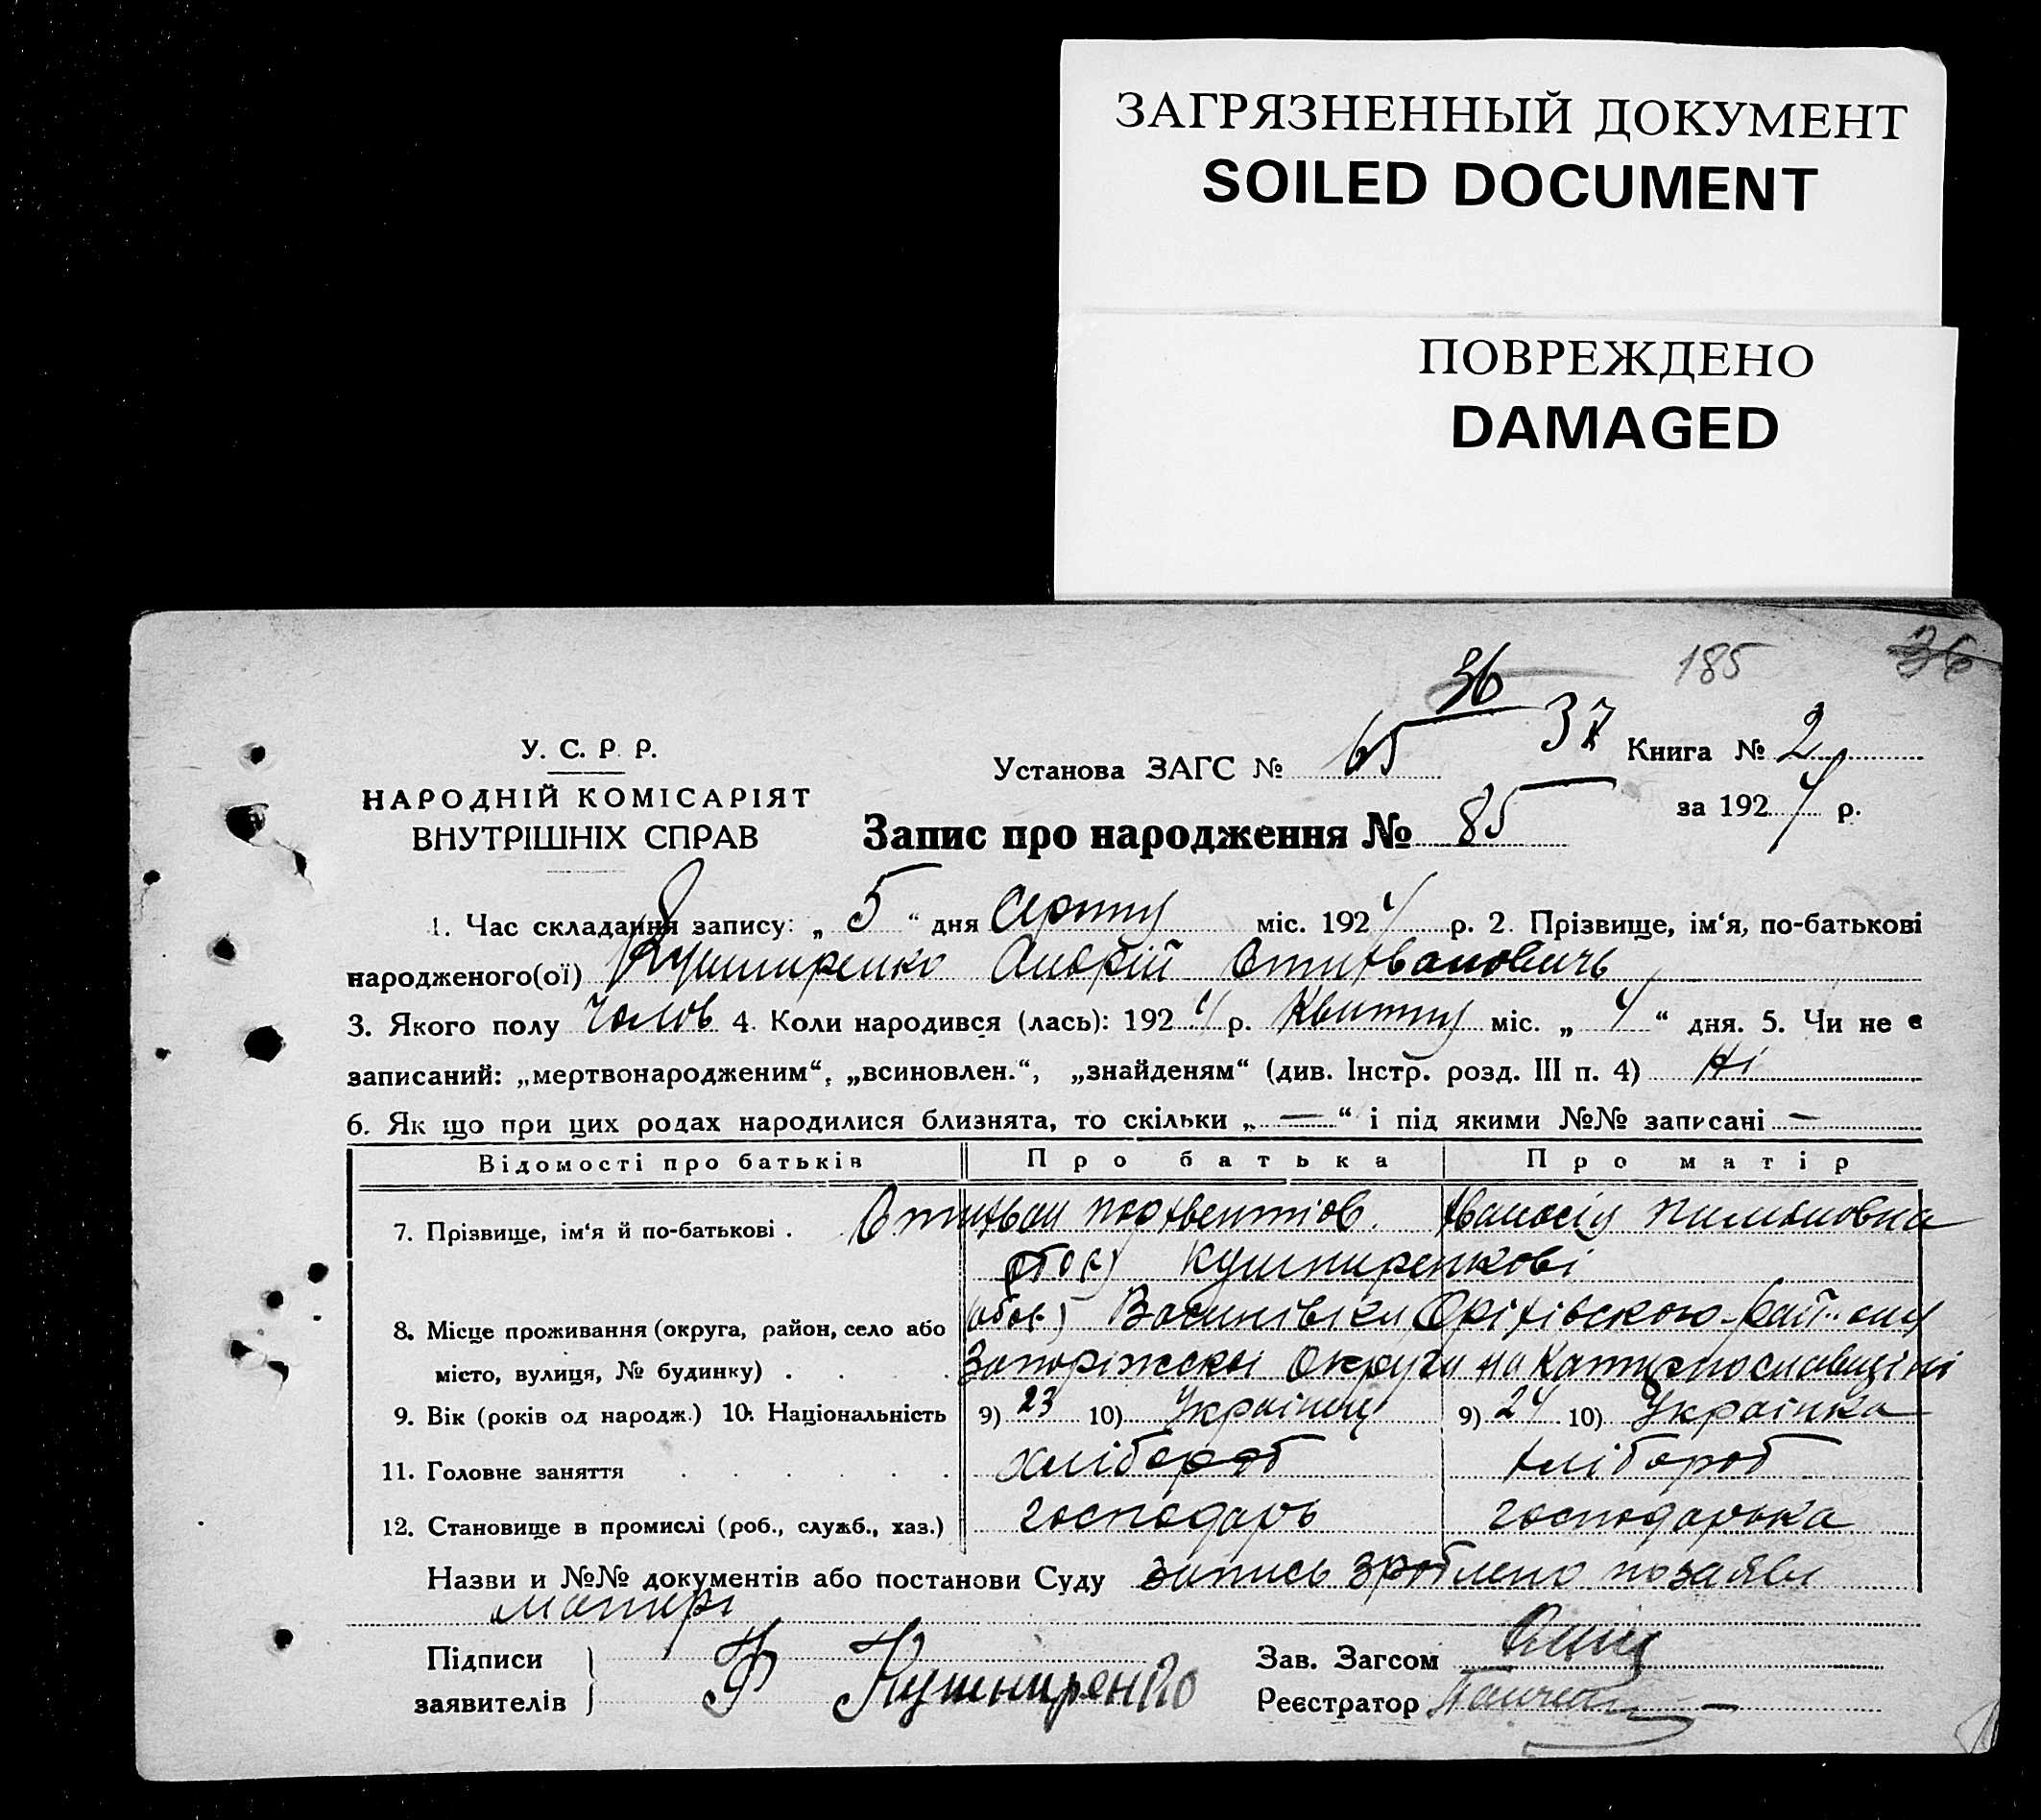 ЗАГРЯЗНЕННЫЙ ДОКУМЕНТ
SOILED DOCUMENT
ПОВРЕЖДЕНО
DAMAGED
36 185 36
У. С. Р. Р.
НАРОДНІЙ КОМІСАРІЯТ
ВНУТРІШНІХ СПРАВ
Установа ЗАГС № 65 37 Книга № 2
за 192 4 р.
Запис про народження № 85
1. Час складання запису: „ 5 “ дня Серпня міс. 192 4 р. 2. Прізвище, ім‘я, по-батькові
народженого(ої) Кушниренко Андрій
3. Якого полу Чолов 4. Коли народився (лась): 192 4 р. Квитня міс. „ 4 “ дня. 5. Чи не є
записаний: „мертвонародженим“, „всиновлен.“, „знайденям“ (див. Інстр. розд. III п. 4) Ні
6. Як що при цих родах народилися близнята, то скільки „ — “ і під якими №№ записані —
Відомості про батьків Про батька Про матір
7. Прізвище, ім‘я й по-батькові .
Кушниренкові
8. Місце проживання (округа, район, село або
місто, вулиця, № будинку) . . . . Округи на
9. Вік (років од народж.) 10. Національність 9) 23 10) Українець 9) 24 10) Українка
11. Головне заняття . . . . . . хлібороб хлібороб
12. Становище в промислі (роб., служб., хаз.) господарь господарька
Назви и №№ документів або постанови Суду запись зроблено по заяві
матері
Підписи
заявителів
Ф Кушниренко
Зав. Загсом
Реєстратор